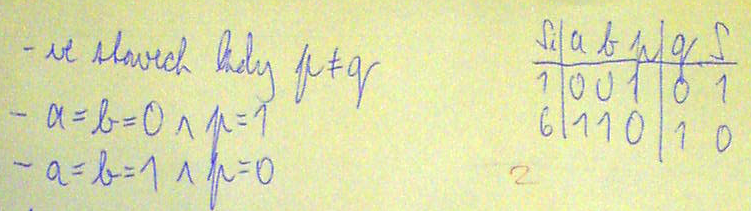 - ve stavech kdy p ≠ q
- a = b = 0 ∧ p = 1
- a = b = 1 ∧ p = 0
Si | a b p | q S
1 | 0 0 1 | 0 1
6 | 1 1 0 | 1 0
2